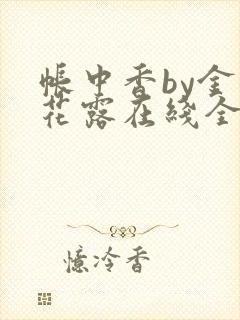 帐中香by金
花露在线全
憶冷香